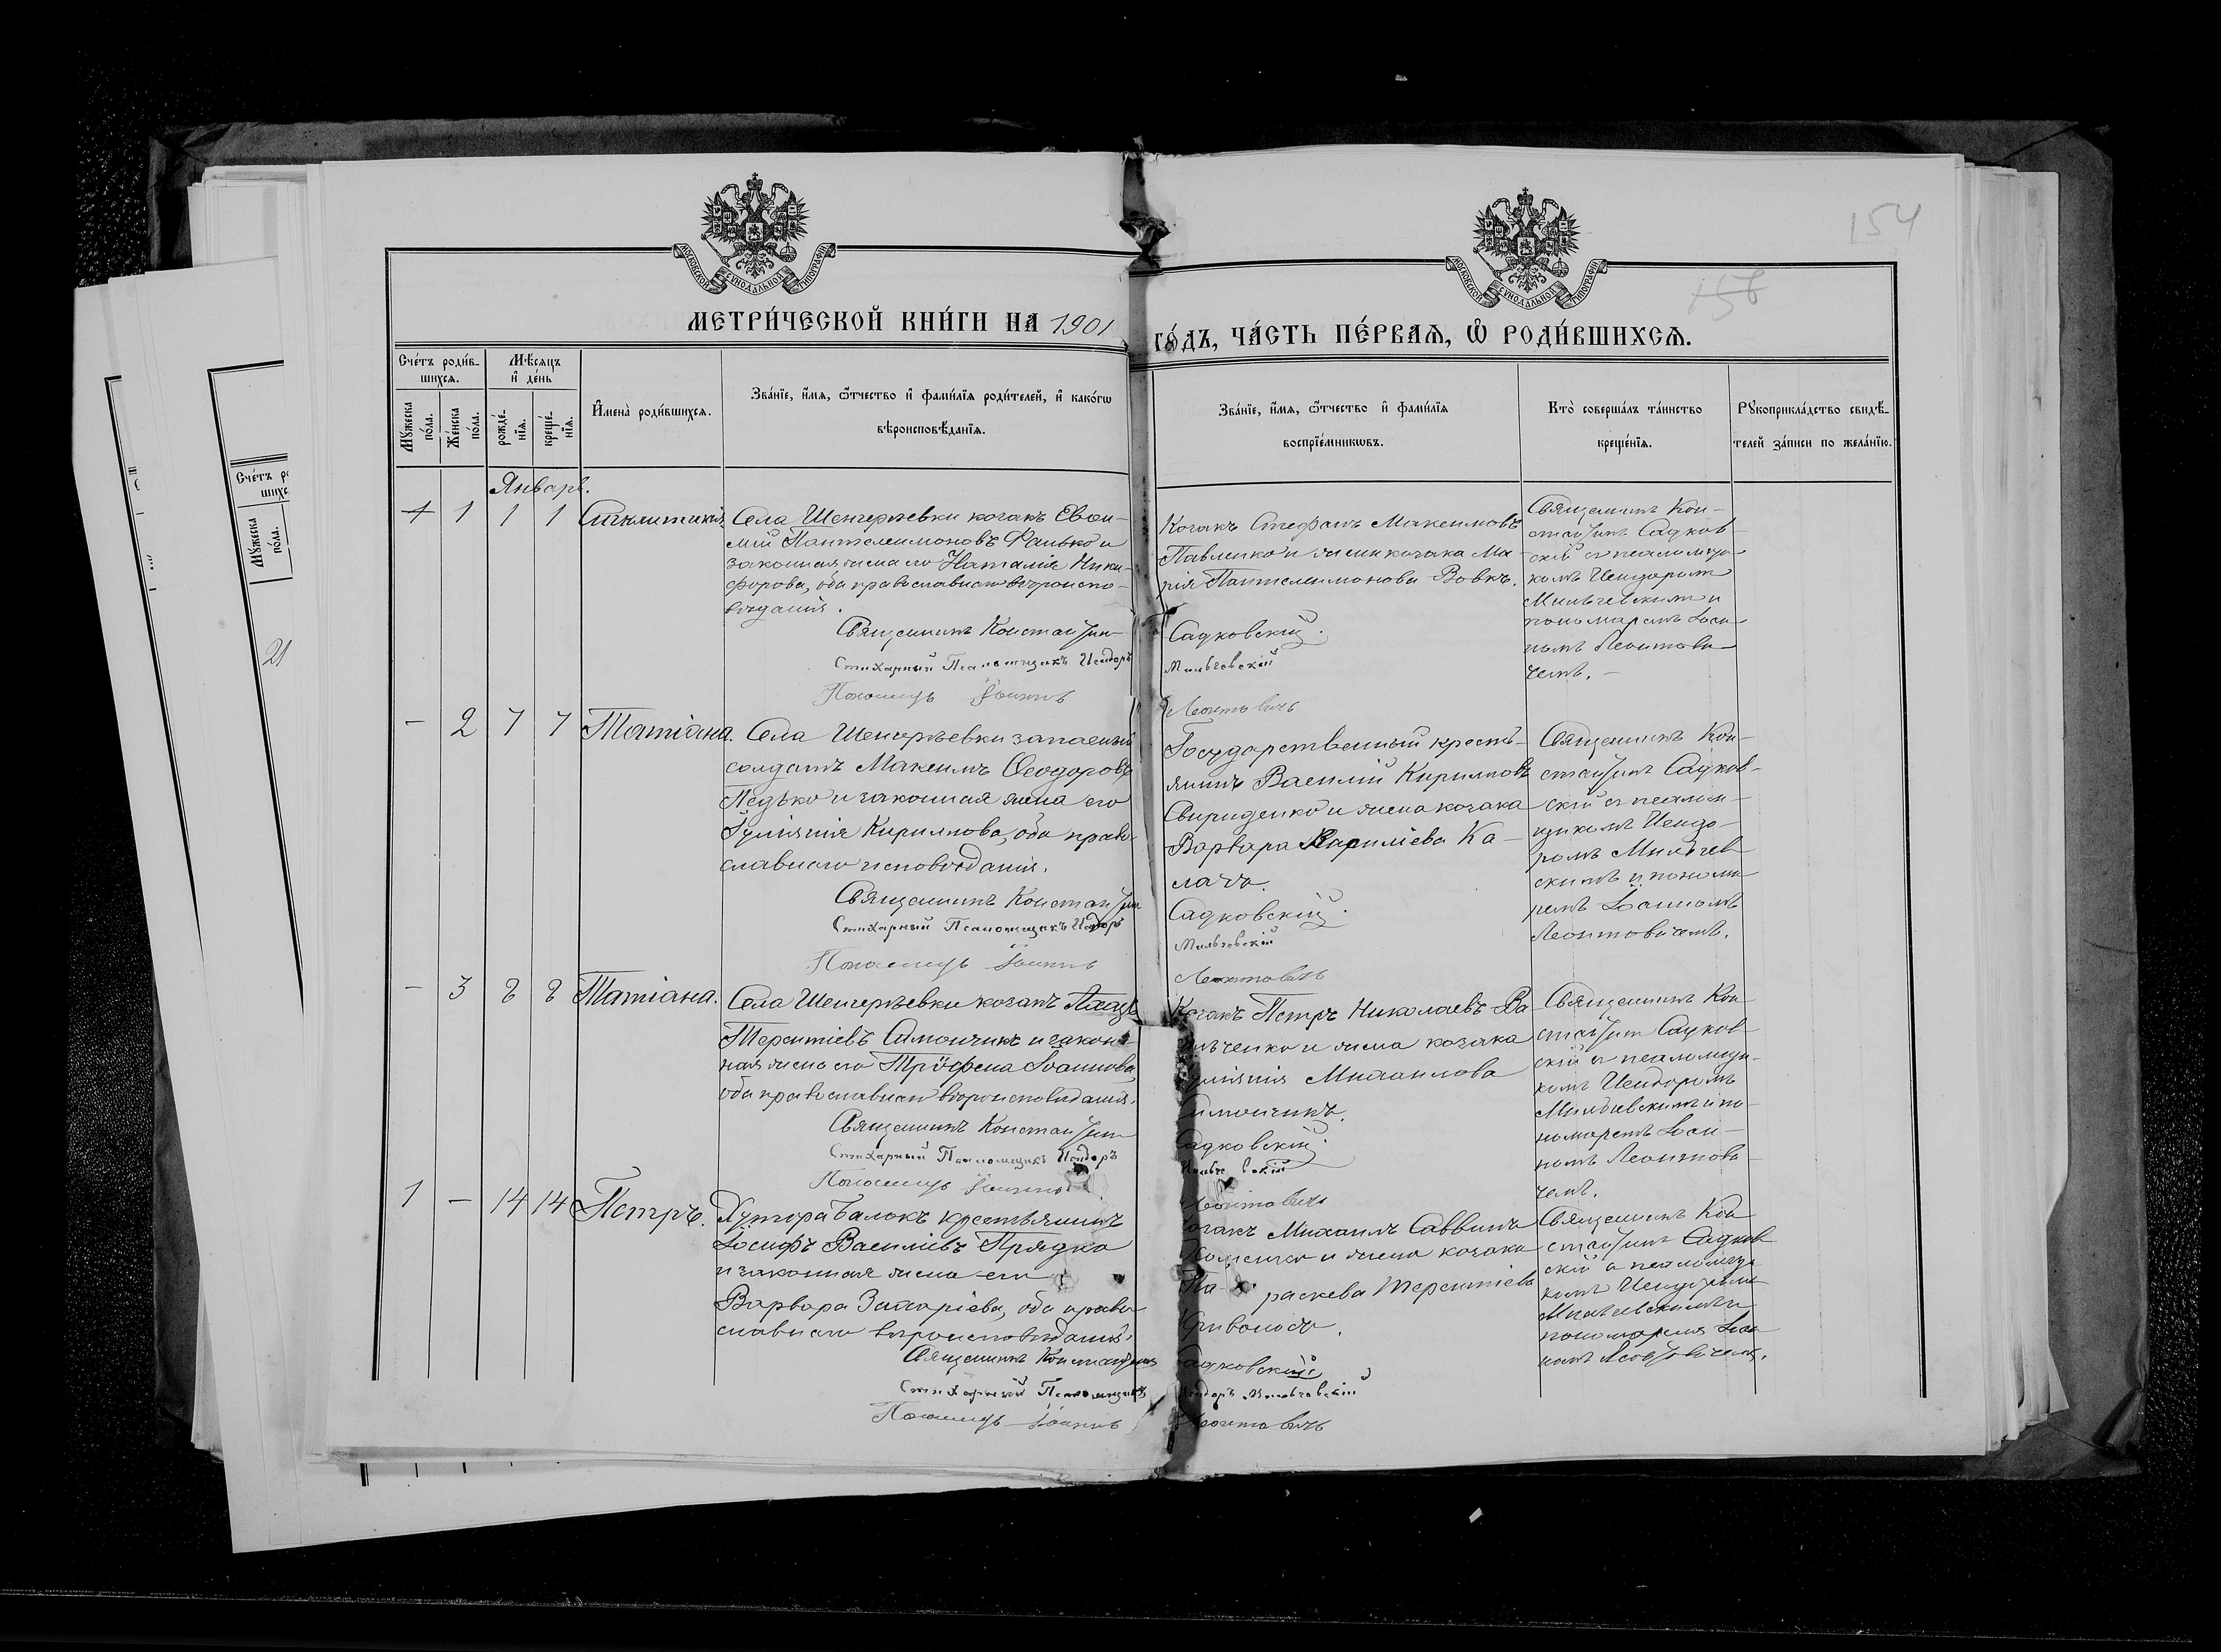 154
156
МОСКОВСКОЙ СѴНОДАЛЬНОЙ ТИПОГРАФІИ
МОСКОВСКОЙ СѴНОДАЛЬНОЙ ТИПОГРАФІИ
МЕТРИ́ЧЕСКОЙ КНИ́ГИ НА 1901
ГО́ДЪ, ЧА́СТЬ ПЕ́РВАѦ, Ѡ҆ РОДИ́ВШИХСѦ.
Сче́тъ роди́в-
шихсѧ.
Мѣ́сѧцъ
и҆ де́нь
Мꙋ́жеска
по́ла.
Же́нска
по́ла.
рожде́-
нїѧ.
креще́-
нїѧ.
И҆мена̀ роди́вшихсѧ.
Зва́нїе, и҆́мѧ, ѻ҆́тчество и҆ фами́лїѧ роди́телей, и҆ како́гѡ
вѣроисповѣ́данїѧ.
Зва́нїе, и҆́мѧ, ѻ҆́тчество и҆ фами́лїѧ
воспрїе́мникѡвъ.
Кто̀ соверша́лъ та́инство
креще́нїѧ.
Рꙋкоприкла́дство свидѣ́-
телей за́писи по жела́нїю.
Январь.
1 1 1 1
Села козакъ Евѳи-
мій Пантелеимоновъ и
законная жена его Наталія Ники-
форова, оба православнаго вѣроиспо-
вѣданія.
Священникъ Константин
Стихарный Псаломщикъ Исидоръ
Пономарь Іоаннъ
Козакъ Стефанъ Максимовъ
Павленко и жена козака Ма-
рія Пантелимонова Вовкъ.
Садковскій.
Мильчевскій
Леонтовичъ
Священникъ Кон-
стантинъ Садков-
скій съ псаломщи-
комъ Исидоромъ
Мильчевскимъ и
пономаремъ Іоан-
номъ Леонтови-
чемъ.
- 2 7 7 Татіана.
Села запасный
солдатъ Максимъ Ѳеодоровъ
Педько и законная жена его
Іуліанія Кирилова, оба право-
славнаго исповѣданія.
Священникъ Константин
Стихарный Псаломщикъ Исидоръ
Пономарь Іоаннъ
Государственный кресть-
янинъ Василій Кириловъ
Свириденко и жена козака
Варвара Василіева Ка-
лачъ.
Садковскій.
Мильчевскій
Леонтовичъ
Священникъ Кон-
стантинъ Садков-
скій съ псалом-
щикомъ Исидо-
ромъ Мильчев-
скимъ и понома-
ремъ Іоанномъ
Леонтовичемъ.
- 3 8 8 Татіана.
Села козакъ
Терентіевъ Симончикъ и закон-
ная жена его Трифена Іоаннова,
оба православнаго вѣроисповѣданія.
Священникъ Константин
Стихарный Псаломщикъ Исидоръ
Пономарь Іоаннъ
Козакъ Петръ Николаевъ Ва-
сильченко и жена козака
Іуліанія Михаилова
Симончикъ.
Садковскій.
Мильчевскій
Леонтовичъ
Священникъ Кон-
стантинъ Садков-
скій съ псаломщи-
комъ Исидоромъ
Мильчевскимъ и по-
номаремъ Іоан-
номъ Леонтови-
чемъ.
1 - 14 14 Петръ.
Хутора Балокъ крестьянинъ
Іосифъ Василіевъ Прядко
и законная жена его
Варвара Захаріева, оба право-
славнаго вѣроисповѣданія.
Священникъ Константинъ
Стихарный Псаломщикъ
Пономарь Іоаннъ
Козакъ Михаилъ Саввинъ
и жена козака
Параскева Терентіева
Кривоносъ.
Садковскій
Исидоръ Мильчевскій
Леонтовичъ
Священникъ Кон-
стантинъ Садков-
скій съ псаломщи-
комъ Исидоромъ
Мильчевскимъ и
пономаремъ Іоан-
номъ Леонтовичемъ.
Сче́тъ ро
шихс
Мꙋ́жеска
по́ла.
21